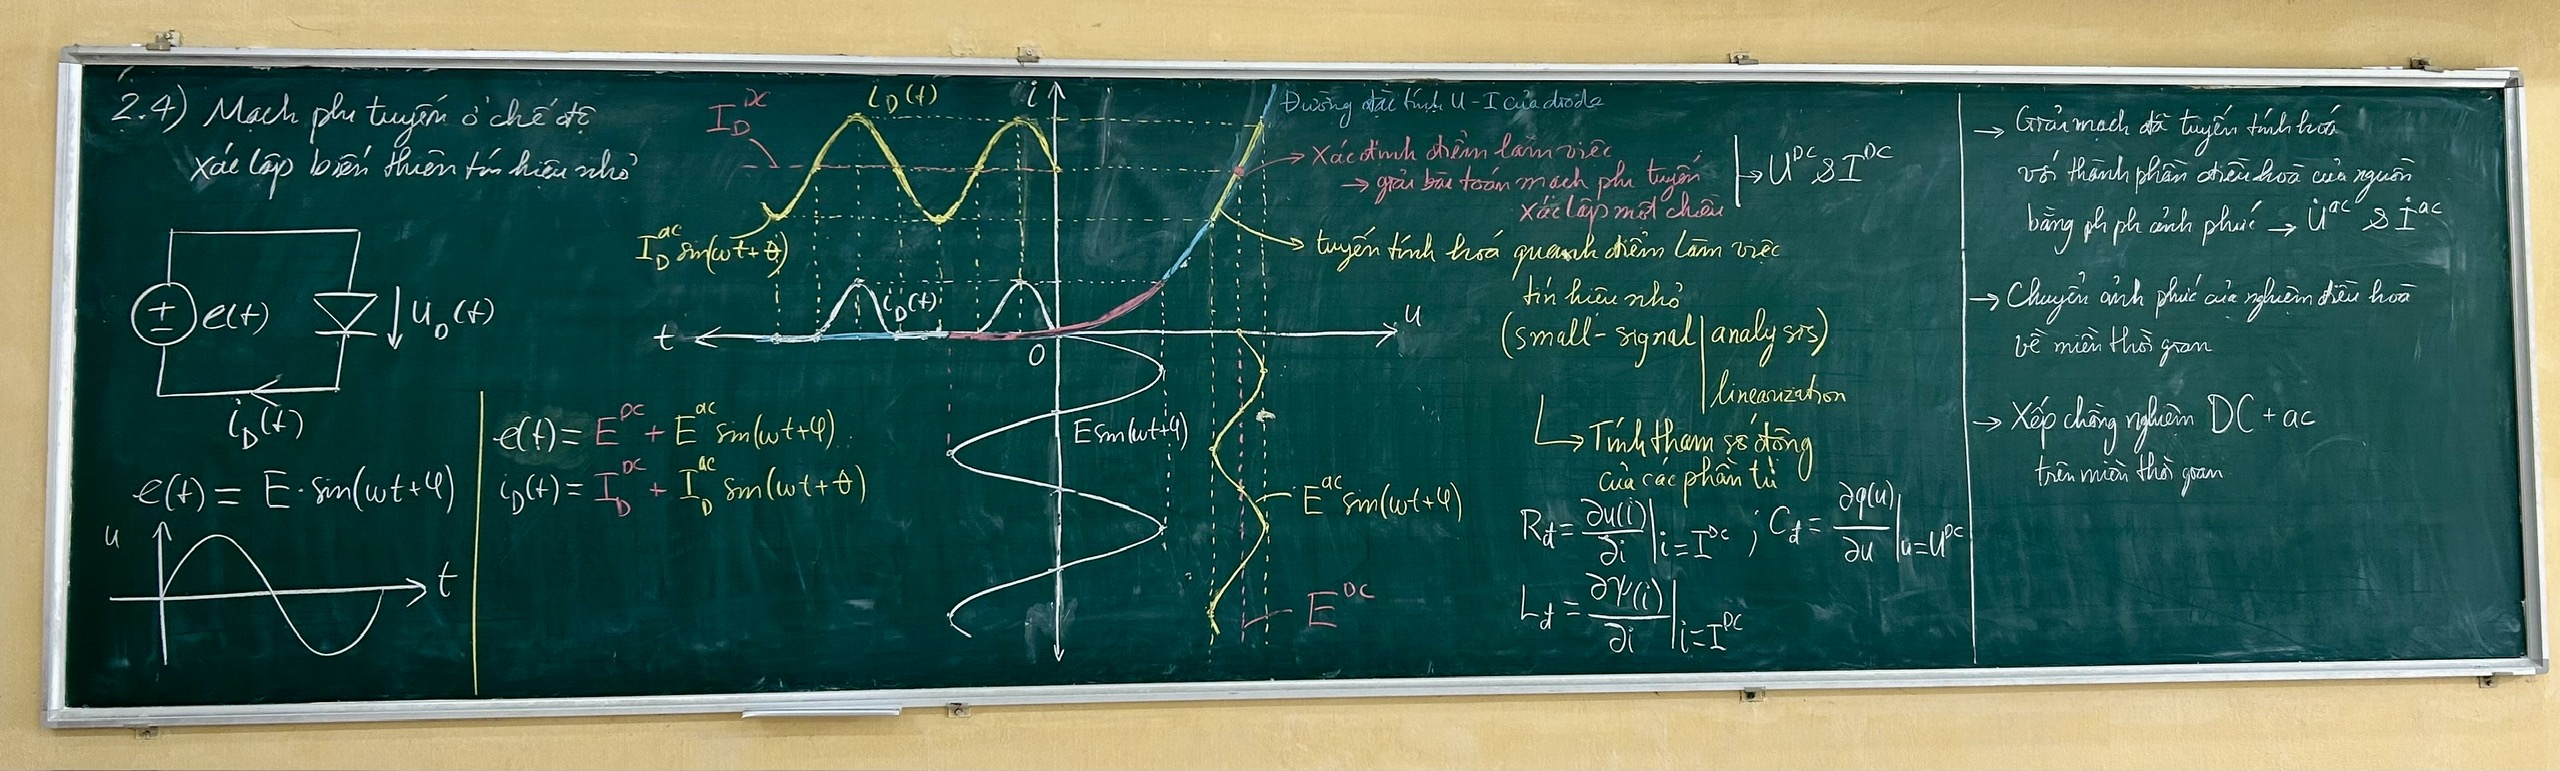 2.4) Mạch phi tuyến ở chế độ
xác lập biến thiên tín hiệu nhỏ
e(t)
u_D(t)
i_D(t)
e(t) = E·sin(ωt+φ)
u
t
e(t) = E^DC + E^ac sin(ωt+φ)
i_D(t) = I_D^DC + I_D^ac sin(ωt+θ)
I_D^DC
i_D(t)
i
I_D^ac sin(ωt+θ)
i_D(t)
t
O
u
E sin(ωt+φ)
E^ac sin(ωt+φ)
E^DC
Đường đặc tính U-I của diode
→ Xác định điểm làm việc
→ giải bài toán mạch phi tuyến
xác lập một chiều
→ U^DC & I^DC
→ tuyến tính hoá quanh điểm làm việc
tín hiệu nhỏ
(small-signal analysis)
linearization
→ Tính tham số động
của các phần tử
R_d = ∂u(i)/∂i |i=I^DC ; C_d = ∂q(u)/∂u |u=U^DC
L_d = ∂Ψ(i)/∂i |i=I^DC
→ Giải mạch đã tuyến tính hoá
với thành phần điều hoà của nguồn
bằng ph ph ảnh phức → U̇^ac & İ^ac
→ Chuyển ảnh phức của nghiệm điều hoà
về miền thời gian
→ Xếp chồng nghiệm DC + ac
trên miền thời gian